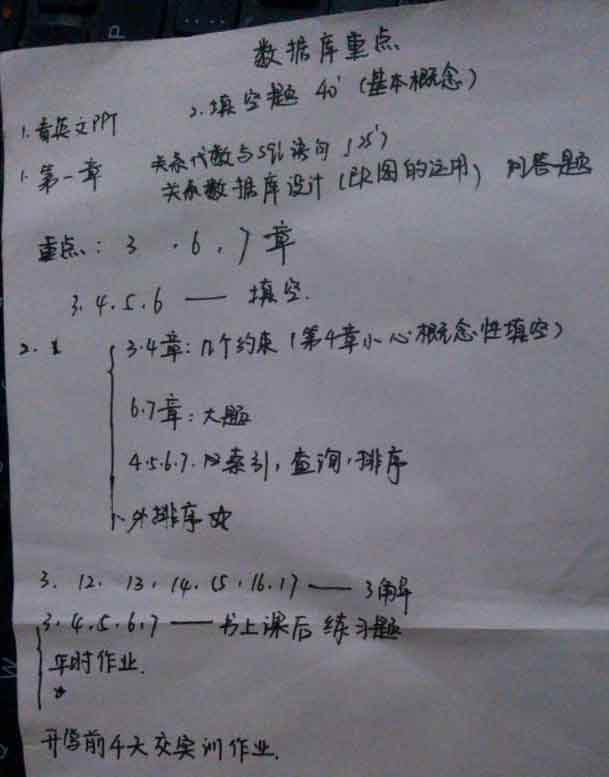 数据库重点
1.看英文PPT 2.填空题 40'(基本概念)
1.第一章 关系代数与sql语句 (25')
关系数据库设计(ER图的运用) 问答题
重点: 3 . 6 . 7 章
3.4.5.6 —— 填空.
2. 3.4章:几个约束(第4章小心概念性填空)
6.7章:大题
4.5.6.7. 索引,查询,排序
外排序
3. 12. 13. 14. 15. 16. 17 ——
3.4.5.6.7 —— 书上课后 练习题
平时作业.
前4天交实训作业.